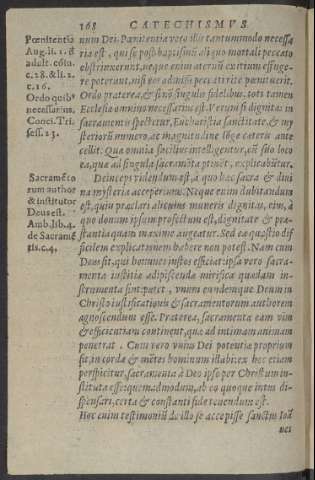 168 CATECHISMVS
Pœnitentia
Aug. li. 1. d
adult. cōiu.
c. 28. & li. 2.
c. 16.
Ordo quib9
necessarius.
Conci. Tri.
sess. 23.
Sacramēto
rum author
& institutor
Deus est.
Amb. lib. 4.
de Sacramē
tis. c. 4.
num Dei. Pœnitentia vero illis tantummodo necessa
ria est, qui se post baptismū aliquo mortali peccato
obstrinxerunt, neque enim æternū exitium effuge-
re poterunt, nisi eos admissi peccati rite pœnituerit.
Ordo præterea, & si nō singulis fidelibus, toti tamen
Ecclesiæ omnino necessarius est. Verum si dignitas in
sacramentis spectetur, Eucharistia sanctitate, & my
steriorū numero, ac magnitudine lōge cæteris ante
cellit. Quæ omnia facilius intelligentur, cū suo loco
ea, quæ ad singula sacramēta ptinēt, explicabūtur.
Deinceps videndum est, à quo hæc sacra & divi
na mysteria acceperimus. Neque enim dubitandum
est, quin præclari alicuius muneris dignitas, eius, à
quo donum ipsum profectum est, dignitate & præ-
stantia quam maxime augeatur. Sed ea quæstio dif
ficilem explicationem habere non potest. Nam cum
Deus sit, qui homines iustos efficiat: ipsa vero sacra-
menta iustitiæ adipiscendæ mirifica quædam in-
strumenta sint: patet, vnum eundemque Deum in
Christo iustificationis & sacramentorum authorem
agnoscendum esse. Præterea, sacramenta eam vim
& efficientiam continent, quæ ad intimam animam
penetrat. Cum vero vnius Dei potentiæ proprium
sit, in corda & mētes hominum illabi: ex hoc etiam
perspicitur, sacramenta à Deo ipso per Christum in-
stituta esse: quemadmodum, ab eo quoque intus di-
spensari, certa & constanti fide tenendum est.
Hoc enim testimoniū de illo se accepisse sanctus Ioā
nes